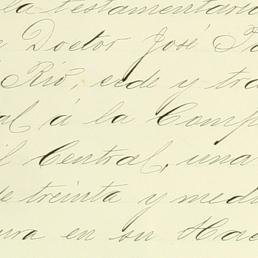 la testamentaría
e Doctor José Pa
Rio, cede y tra
al á la Comp
il Central, una
de treinta y medi
ura en su Hac